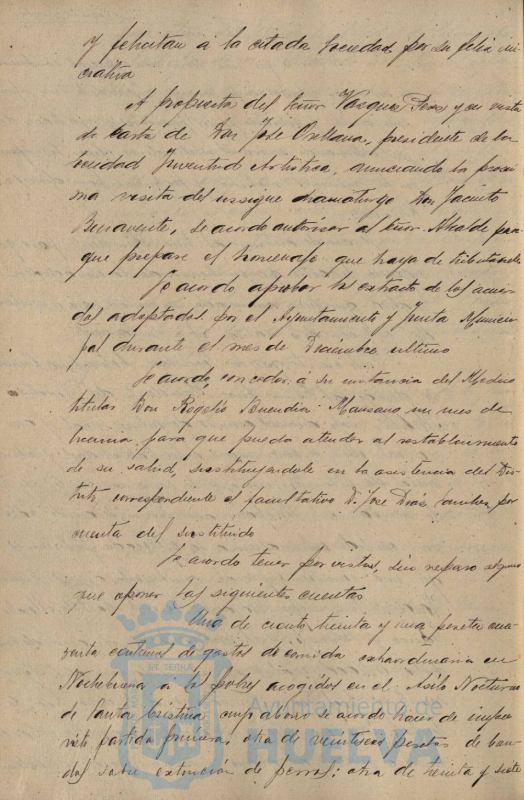 y felicitan á la citada Sociedad por su feliz ini
ciativa
A propuesta del Señor Vazquez Perez y en vista
de carta de Don José Orellana, presidente de la So
ciedad Juventud Artistica, anunciando la proxi
ma visita del insigne dramaturgo Don Jacinto
Benavente, se acordó autorizar al Señor Alcalde para
que prepare el homenaje que haya de tributarsele
Se acordó aprobar los extractos de los acuer
dos adoptados por el Ayuntamiento y Junta Munici
pal durante el mes de Diciembre ultimo
Se acordó conceder, á su instancia del Medico
titular Don Rogelio Buendia Manzano un mes de
licencia para que pueda atender al restablecimiento
de su salud, sustituyendole en la asistencia del Dis
trito correspondiente el facultativo D. José por
cuenta del sustituido
Se acordó tener por vistas, sin reparo alguno
que oponer las siguientes cuentas
Una de ciento treinta y una pesetas cua
renta centimos de gastos de comida extraordinaria en
Nochebuena a los pobres acogidos en el Asilo Nocturno
de Santa Cristina cuyo abono se acordó hacer de impre
vistos partida primera; otra de veinticinco pesetas de ban
dos sobre extinción de perros; otra de treinta y siete
Ayuntamiento de
HUELVA